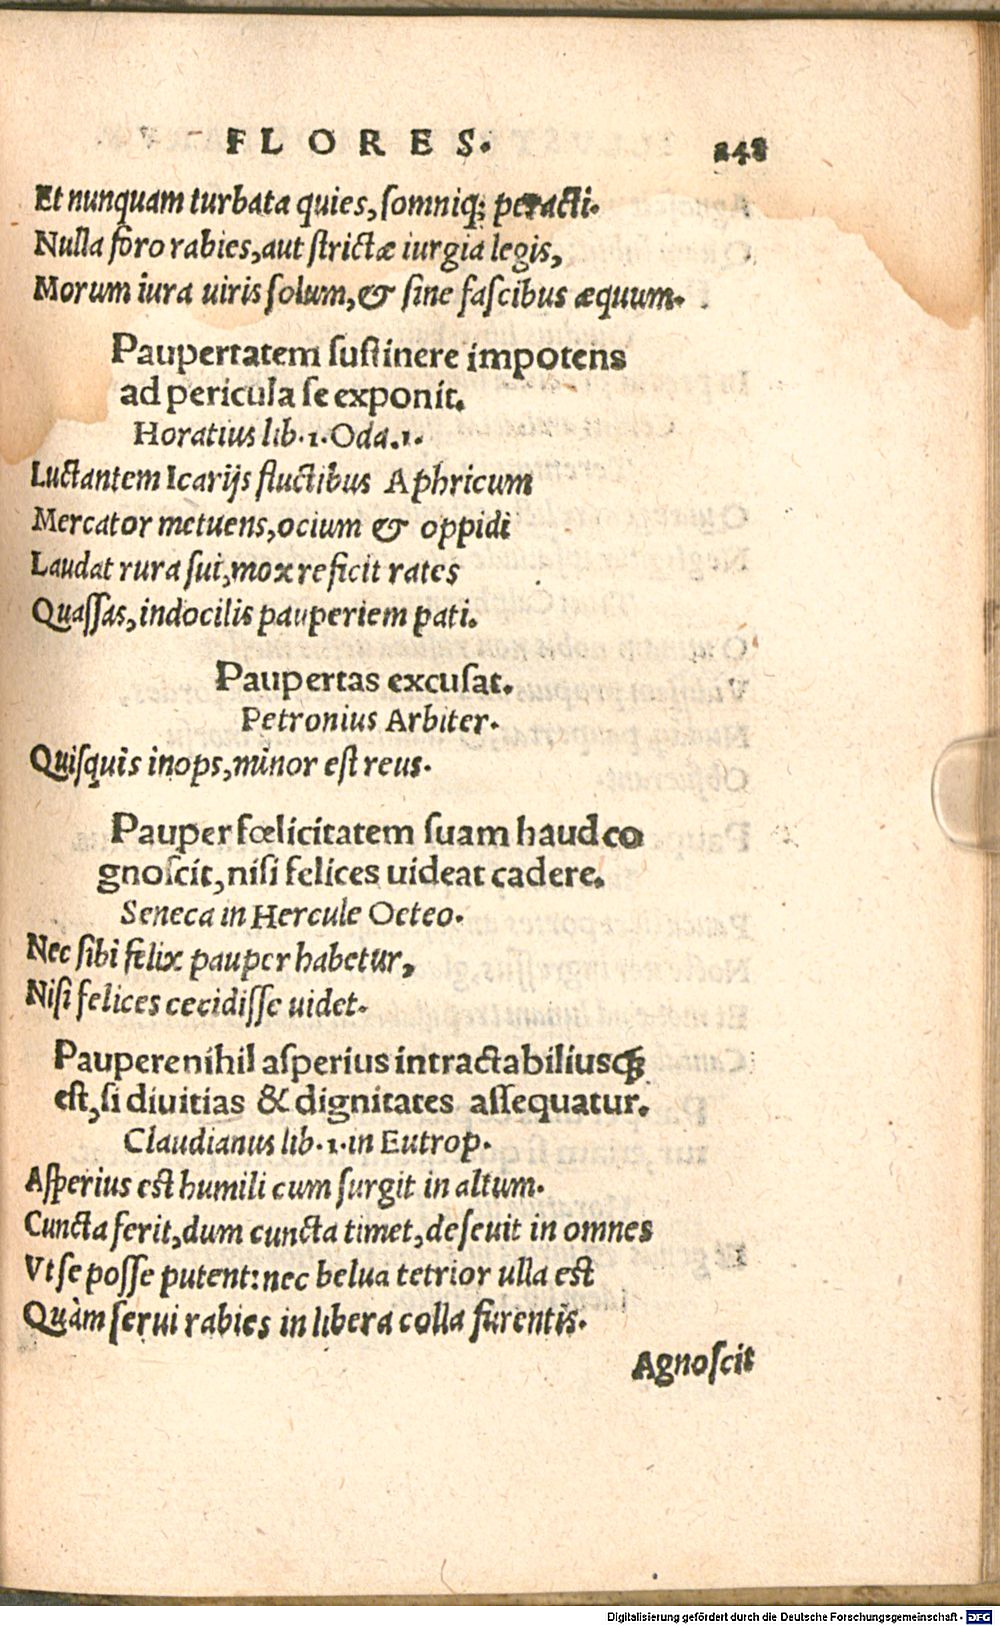 FLORES. 248
Et nunquam turbata quies, somniq; peracti.
Nulla foro rabies, aut strictæ iurgia legis,
Morum iura uiris solum, & sine fascibus æquum.
Paupertatem sustinere impotens
ad pericula se exponit.
Horatius lib. 1. Oda. 1.
Luctantem Icarijs fluctibus Aphricum
Mercator metuens, ocium & oppidi
Laudat rura sui, mox reficit rates
Quassas, indocilis pauperiem pati.
Paupertas excusat.
Petronius Arbiter.
Quisquis inops, minor est reus.
Pauper fœlicitatem suam haud co
gnoscit, nisi felices uideat cadere.
Seneca in Hercule Oeteo.
Nec sibi felix pauper habetur,
Nisi felices cecidisse uidet.
Paupere nihil asperius intractabiliusq;
est, si diuitias & dignitates assequatur.
Claudianus lib. 1. in Eutrop.
Asperius est humili cum surgit in altum.
Cuncta ferit, dum cuncta timet, deseuit in omnes
Vt se posse putent: nec belua tetrior ulla est
Quàm serui rabies in libera colla furentis.
Agnoscit
Digitalisierung gefördert durch die Deutsche Forschungsgemeinschaft - DFG